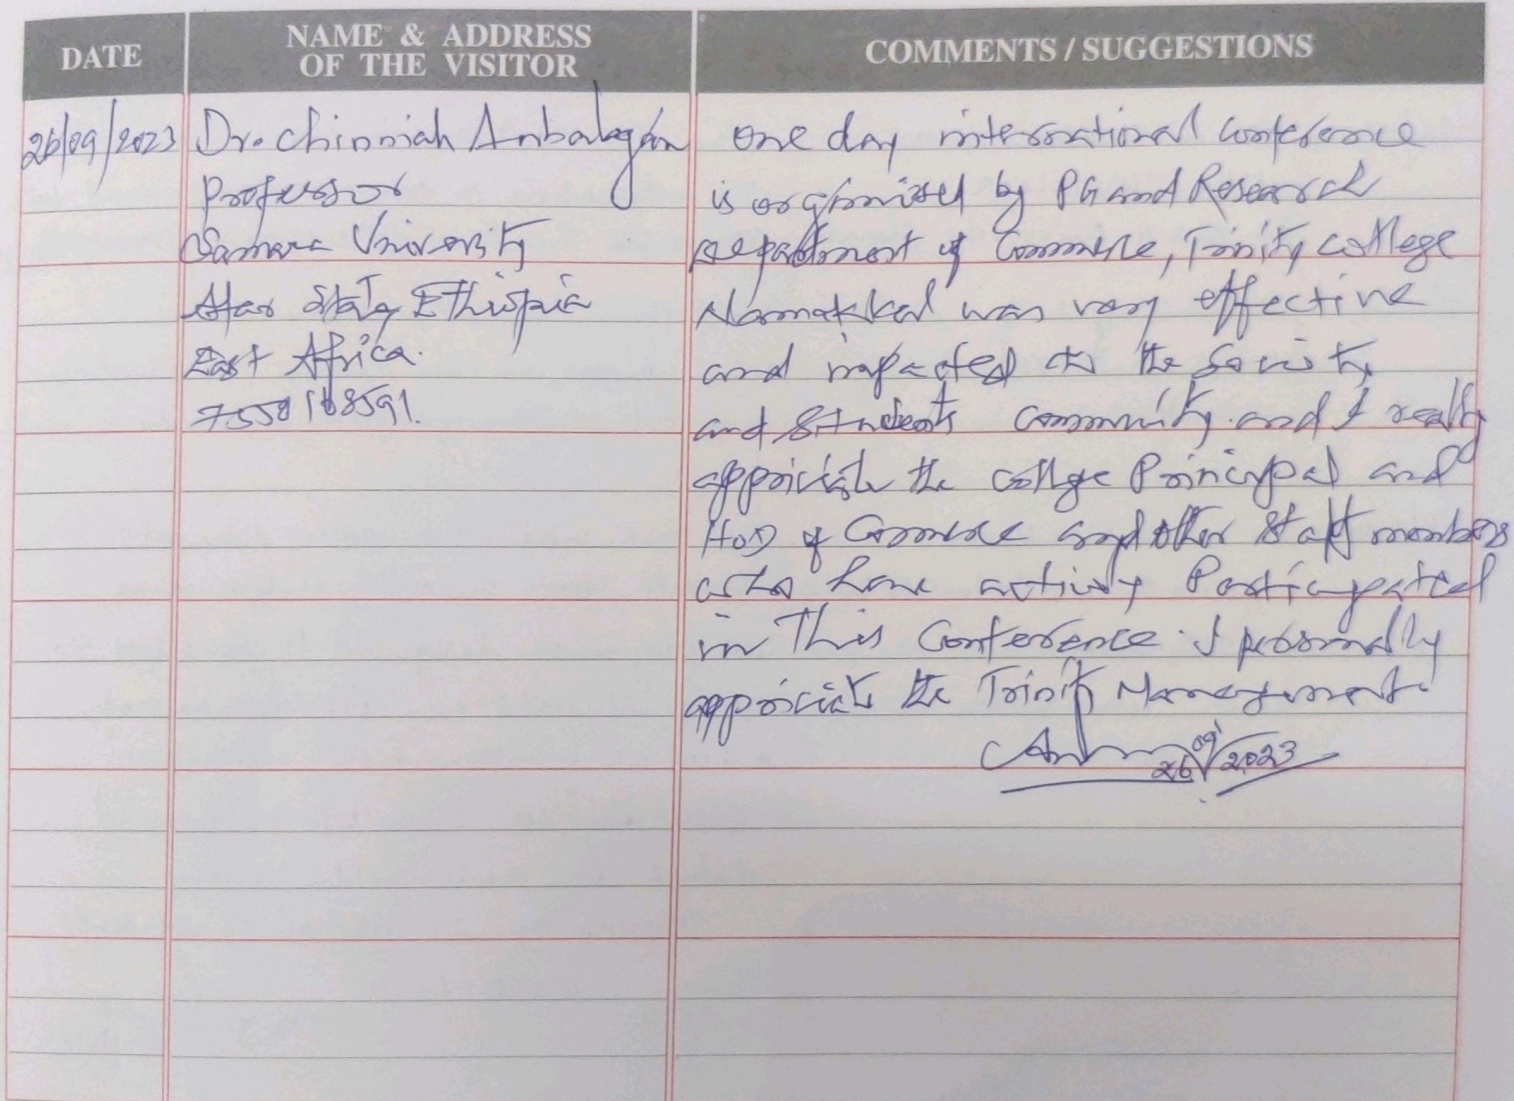 DATE
NAME & ADDRESS
OF THE VISITOR
COMMENTS / SUGGESTIONS
26/09/2023
Dr. Chinniah Anbalagan
Professor
Samara University
Afar State, Ethiopia
East Africa.
7550168591.
One day international conference
is organised by PG and Research
Department of Commerce, Trinity College
Namakkal was very effective
and impacted to the Society
and Students community. and I really
appriciate the college Principal and
HOD of Commerce and other Staff members
who have activly Participated
in This Conference. I personally
appriciate the Trinity Management.
26/09/2023